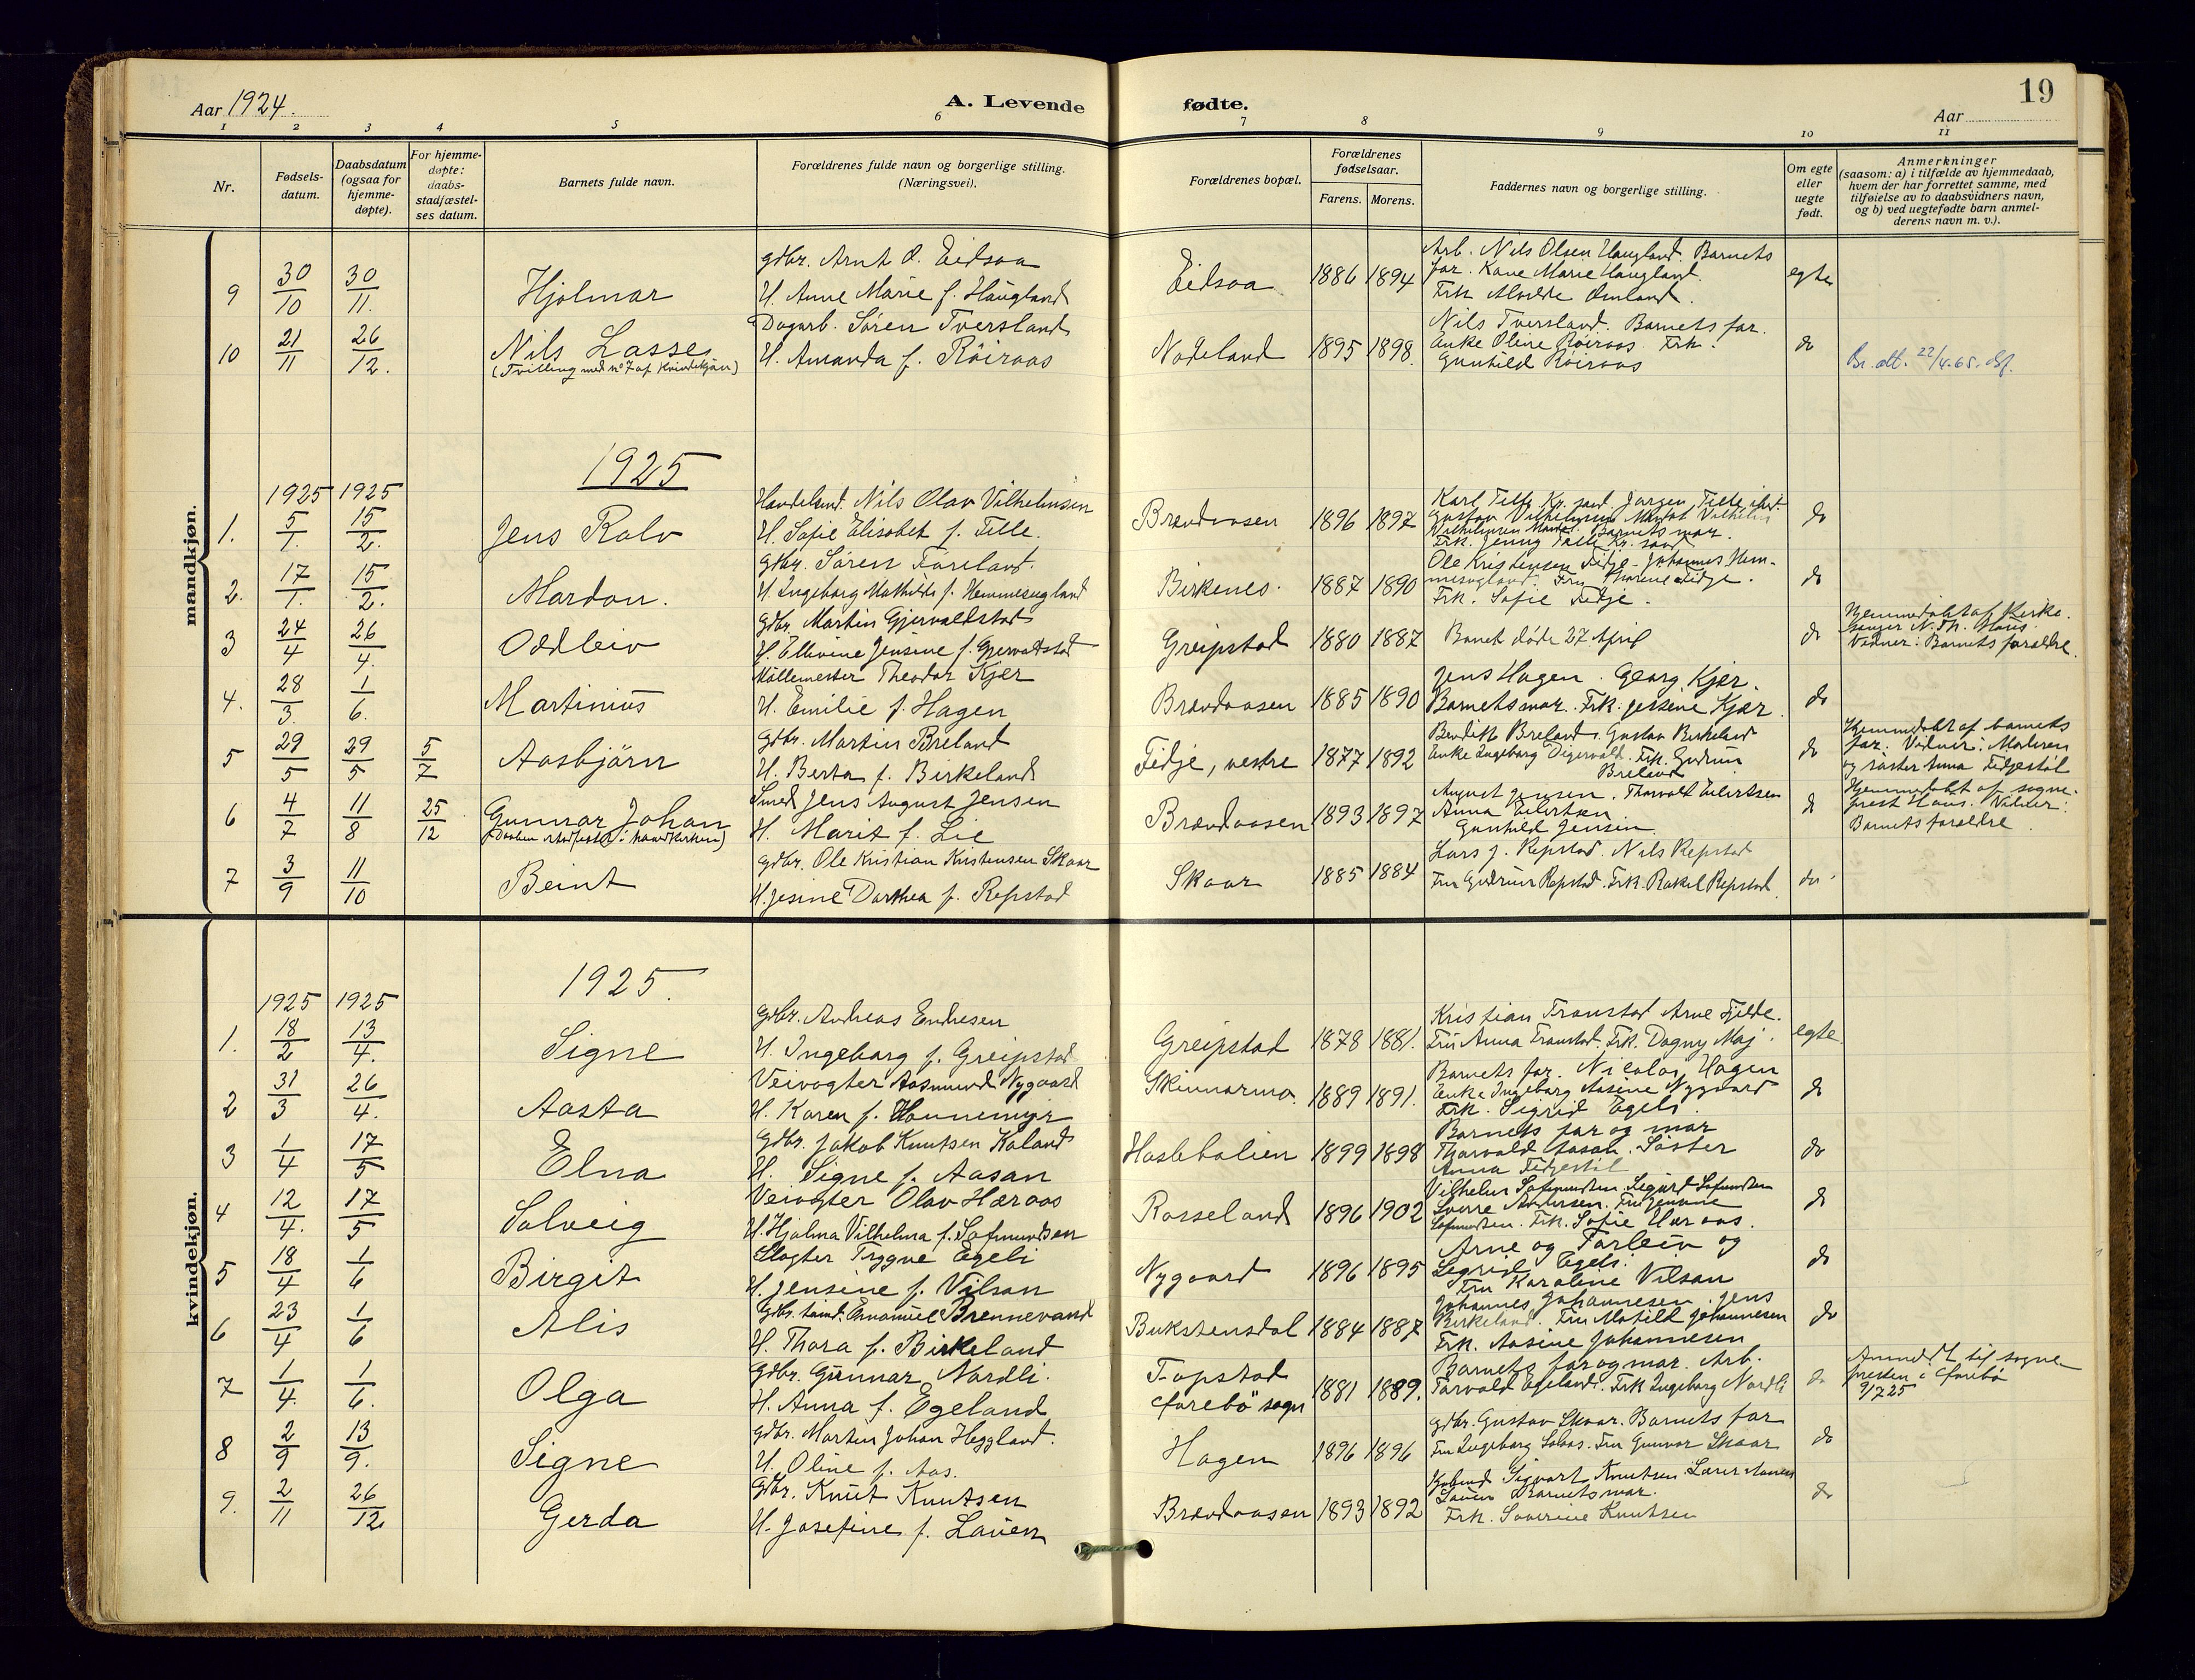 Aar 1924.
A. Levende fødte.
19
Aar
1 2 3 4 5 6 7 8 9 10 11
Nr.
Fødsels-
datum.
Daabsdatum
(ogsaa for
hjemme-
døpte).
For hjemme-
døpte:
daabs-
stadfæstel-
ses datum.
Barnets fulde navn.
Forældrenes fulde navn og borgerlige stilling.
(Næringsvei).
Forældrenes bopæl.
Forældrenes
fødselsaar.
Farens. Morens.
Faddernes navn og borgerlige stilling.
Om egte
eller
uegte
født.
Anmerkninger
(saasom: a) i tilfælde av hjemmedaab,
hvem der har forrettet samme, med
tilføielse av to daabsvidners navn,
og b) ved uegtefødte barn anmel-
derens navn m. v.).
mandkjøn.
9 30/10 30/11. Hjalmar
gdbr. Arnt O. Eidsaa
H. Anne Marie f. Haugland
Eidsaa 1886 1894
Arb. Nils Olsen Haugland. Barnets
far. Kone Marie Haugland.
Frk Omland.
egte
10 21/11 26/12. Nils Lasse
(Tvilling med no 7 af Kvindekjön)
Dagarb. Sören Tversland
H. Amanda f. Röiraas
Nodeland 1895 1898.
Nils Tversland. Barnets far.
Enke Oline Röiraas. Frk.
Gunhild Röiraas
do
22/4-65.
1925
1925 1925
1. 5/1. 15/2. Jens Ralv
Handelsmd. Nils Olav Vilhelmsen
H. Sofie Elisabet f. Telle.
Brandaasen 1896 1897
Karl Telle Kr.sand Jørgen Telle
Gustav Vilhelmsen Mandal Vilhelm
Vilhelmsen Mandal. Barnets mor.
Frk. Jenny Telle Kr.sand
do
2. 17/1. 15/2. Mardon.
Gdbr. Sören Fareland.
H. Ingeborg Mathilde f. Hemmesugland
Birkenes. 1887 1890
Ole Kristensen Tidje. Johannes Hem-
mesugland. Fru Tidje.
Frk. Sofie Tidje.
do
3 24/4 26/4. Oddleiv
Gdbr. Martin Gjervaldstad
H. Ellevine Jensine f. Gjervaldstad
Greipstad 1880 1887
Barnet døde 27 April
do
Hjemmedøbt af Kirke-
sanger N. Th.
Vidner: Barnets forældre.
4. 28/3. 1/6. Martinius
Möllemester Theodor Kjær
H. Emilie f. Hagen
Brandaasen 1885 1890
Jens Hagen. Georg Kjær.
Barnets mor. Frk. Jessine Kjær.
do
5 29/5 29/5 5/7 Aasbjörn
Gdbr. Martin Breland
H. Berta f. Birkeland
Fidje, vestre 1877 1892
Bendik Breland. Gustav Birkeland
Enke Ingeborg Digervold. Frk. Gudrun
Breland
do
Hjemmedøbt af barnets
far. Vidner: Moderen
og søster Anna Tidjestöl
6 4/7 11/8 25/12 Gunnar Johan
(Daaben stadfæstet i hovedkirken)
Smed Jens August Jensen
H. Marit f. Lie
Brandaasen 1893 1897
August Jensen. Thorvald Eilertsen
Anna Eilertsen
Gunhild Jensen.
do
Hjemmedøbt af sogne-
prest Hans. Vidner:
Barnets forældre.
7 3/9 11/10 Beint
Gdbr. Ole Kristian Kristensen Skaar
H. Jesine Dorthea f. Repstad
Skaar 1885 1884
Lars J. Repstad. Nils Repstad
Fru Gudrun Repstad. Frk. Rakel Repstad.
do
kvindekjøn.
1925.
1925 1925
1. 18/2 13/4. Signe
Gdbr. Andreas Endresen
H. Ingeborg f. Greipstad
Greipstad 1878 1881.
Kristian Tronstad Arne Fjelde.
Fru Anna Tronstad. Frk. Dagny Maj.
egte
2 31/3 26/4. Aasta
Veivogter Aasmund Nygaard
H. Karen f. Honnemyr
Skinnarmo. 1889 1891.
Barnets far. Nicolai Hagen
Enke Ingeborg Aasine Nygaard
Frk. Sigrid Egeli.
do
3 1/4 17/5 Elna
Gdbr. Jakob Knutsen Kaland
H. Signe f. Aasan
Haslebalien 1899 1898
Barnets far og mor
Thorvald Aasan. Søster
Anna Tidjestöl
do
4 12/4. 17/5 Solveig
Veivogter Olav Hæraas
H. Hjalma Vilhelma f. Sofmundsen
Rosseland 1896 1902
Vilhelm Sofmundsen. Sigurd Sofmundsen
Sverre Andersen. Fru
Sofmundsen. Frk. Sofie Hæraas.
do
5 18/4 1/6 Birgit
Slagter Trygve Egeli
H. Jensine f. Vilsan
Nygaard 1896 1895
Arne og Torleiv og
Sigrid Egeli.
Fru Karoline Vilsan
do
6 23/4 1/6 Alis
Gdbr. Emanuel Brennevand
H. Thora f. Birkeland
Bukstensdal 1884 1887
Johannes Johannesen. Jens
Birkeland. Fru Matild Johannesen
Frk. Aasine Johannesen
do
7 1/4. 1/6. Olga
Gdbr. Gunnar Nordli.
H. Anna f. Egeland
Topstad
sogn 1881 1889.
Barnets far og mor. Arb.
Torvald Egeland. Frk Ingeborg Nordli
do
Anmeldt til sogne-
presten i
9/7 25
8 2/9 13/9. Signe
Gdbr. Martin Johan Heggland.
H. Oline f. Aas.
Hagen 1896 1896
Gdbr. Gustav Skaar. Barnets far
Fru Ingeborg Solaas. Fru Gunvor Skaar
do
9. 2/11 26/12 Gerda
Gdbr. Knut Knutsen
H. Josefine f. Lauen
Brandaasen 1893 1892
Sigvart Knutsen. Lærer
Lauen Barnets mor.
Frk. Severine Knutsen
do